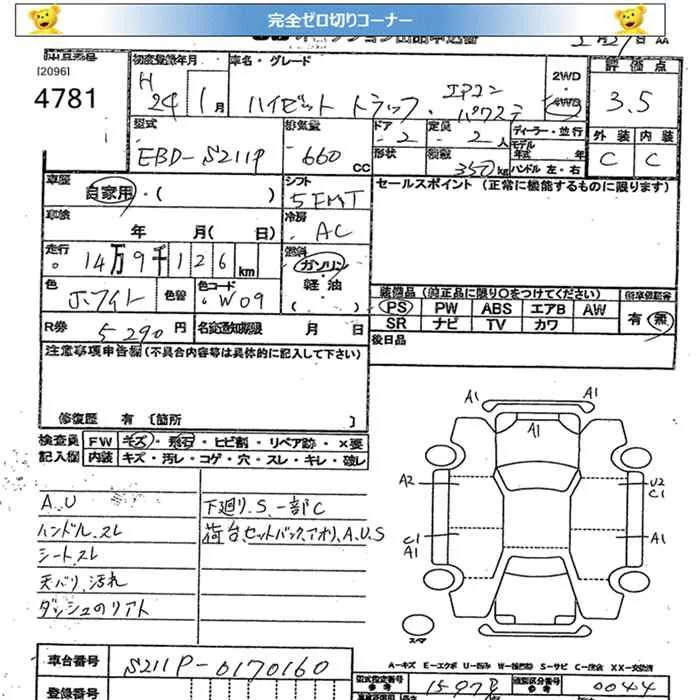 完全ゼロ切りコーナー
[2096]
4781
初度登録年月
H 24年 1月
車名・グレード
ハイゼット トラック・エアコン パワステ
2WD
・
4WD
評価点
3.5
外装 内装
C C
型式
EBD-S211P
排気量
660 CC
ドア
2
形状
定員
2人
積載
350kg
ディーラー・並行
モデル年式 年
ハンドル 左・右
車歴
自家用・( )
シフト
5FMT
セールスポイント (正常に機能するものに限ります)
車検
年 月( 日)
冷房
AC
走行
14万9千126km
燃料
ガソリン
軽油
( )
色
ホワイト
色替
色コード
W09
装備品 (純正品に限り○をつけてください)
PS PW ABS エアB AW
SR ナビ TV カワ
有 無
R券
5290円
名変通知期限 月 日
後日品
注意事項申告欄(不具合内容等は具体的に記入して下さい)
修復歴 有 [箇所 ]
検査員
記入欄
FW キズ・飛石・ヒビ割・リペア跡・×要
内装 キズ・汚レ・コゲ・穴・スレ・キレ・破レ
A.U
ハンドル.スレ
シート.スレ
天バリ.汚れ
ダッシュのリアト
下廻り.S.一部C
荷台.セットバック.アオリ.A.U.S
A1
A1
A1
A2
U2
C1
C1
A1
A1
スペア
A-キズ E-エクボ U-凹み W-補修跡 S-サビ C-腐食 XX-交換済
車台番号
S211P-0170160
登録番号
型式指定番号
参考
類別区分番号
参考
0044